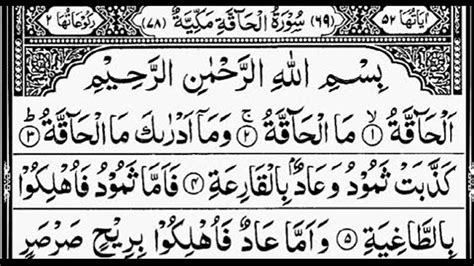 اٰيَاتُهَا ٥٢ (٦٩) سُوْرَةُ الْحَآقَّةِ مَكِّيَّةٌ (٧٨) رُكُوْعَاتُهَا ٢
بِسْمِ اللّٰهِ الرَّحْمٰنِ الرَّحِيْمِ
اَلْحَآقَّةُ ۙ‏﴿۱﴾ مَا الْحَآقَّةُ ۚ‏﴿۲﴾ وَمَاۤ اَدْرٰىكَ مَا الْحَآقَّةُ ؕ‏﴿۳﴾
كَذَّبَتْ ثَمُوْدُ وَعَادٌۢ بِالْقَارِعَةِ ﴿۴﴾ فَاَمَّا ثَمُوْدُ فَاُهْلِكُوْا
بِالطَّاغِيَةِ ﴿۵﴾ وَاَمَّا عَادٌ فَاُهْلِكُوْا بِرِيْحٍ صَرْصَرٍ